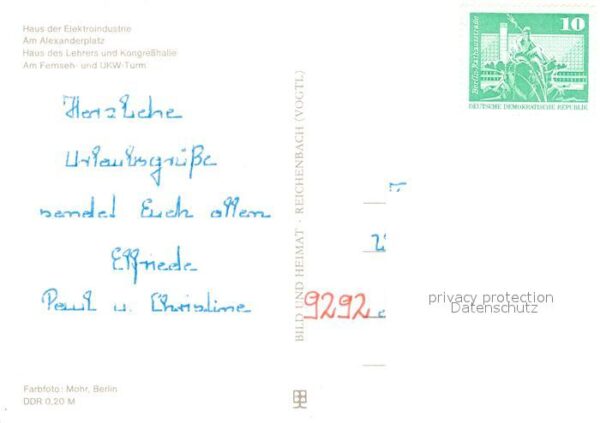 Haus der Elektroindustrie
Am Alexanderplatz
Haus des Lehrers und Kongreßhalle
Am Fernseh- und UKW-Turm
Herzliche
Urlaubsgrüße
sendet Euch allen
Elfriede
Paul u. Christine
Farbfoto: Mohr, Berlin
DDR 0,20 M
BILD UND HEIMAT · REICHENBACH (VOGTL)
10
Berlin, Rathausstraße
DEUTSCHE DEMOKRATISCHE REPUBLIK
9292
privacy protection
Datenschutz